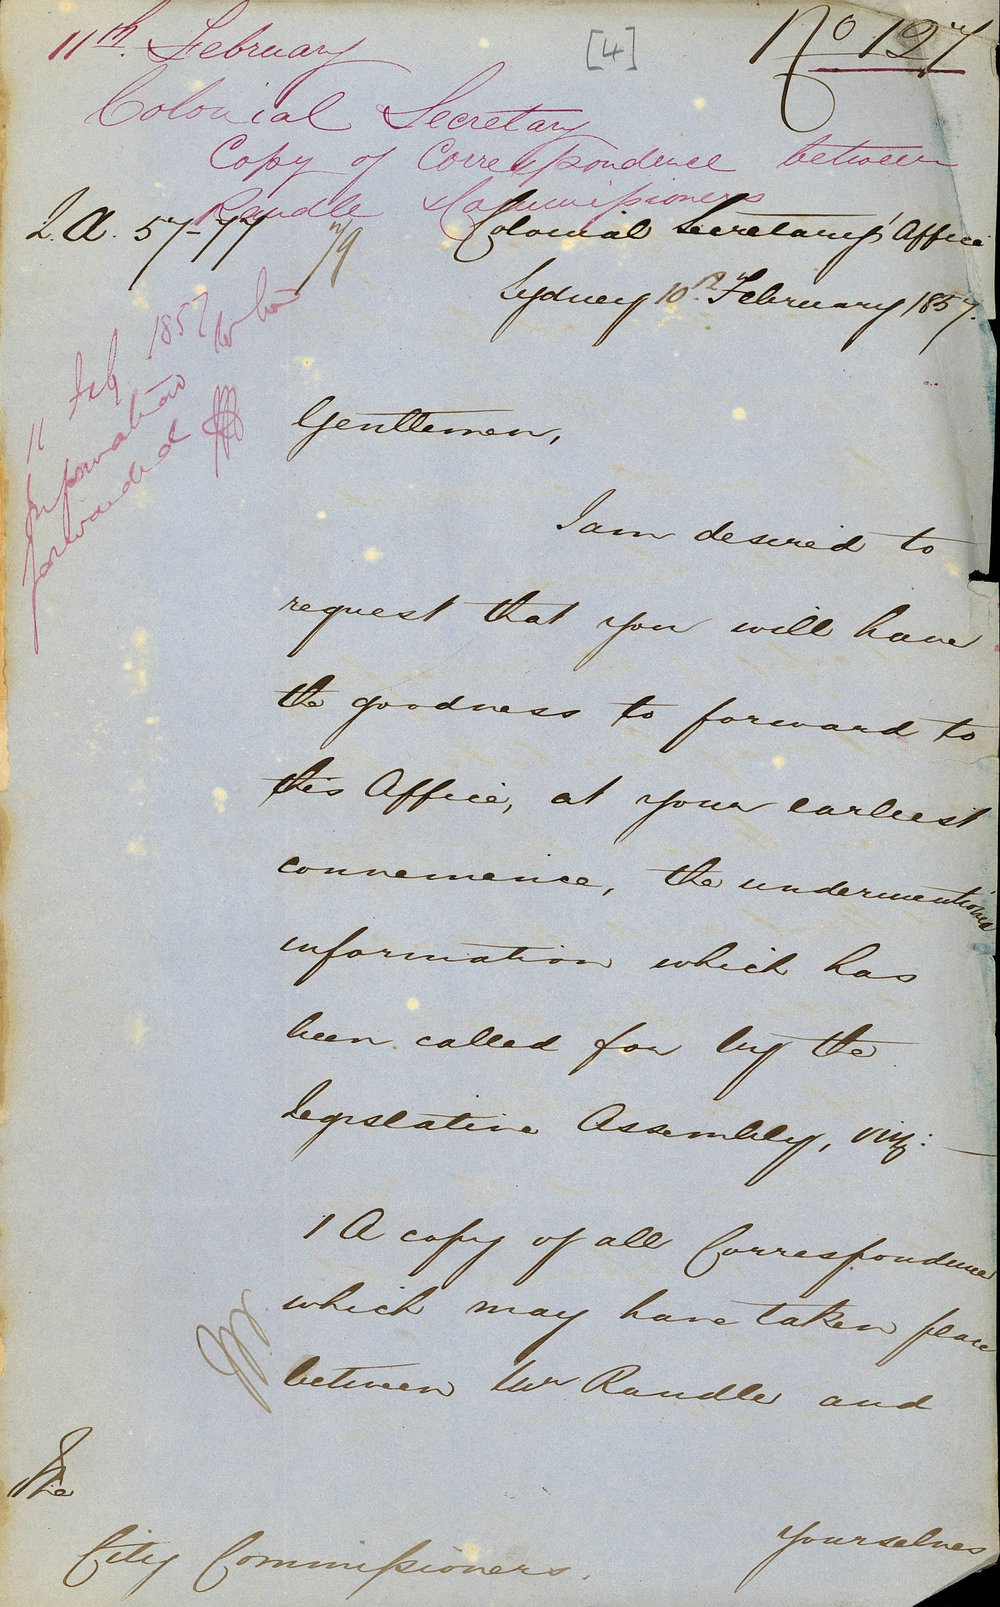 11th. February
[4]
No 127
Colonial Secretary
Copy of Correspondence between
Randle & Commissioners
L.A. 57-77
Colonial Secretary's Office
Sydney 10th February 1857.
11 Feb 1857
Information
forwarded
Gentlemen,
I am desired to
request that you will have
the goodness to forward to
this Office, at your earliest
convenience, the undermentioned
information which has
been called for by the
Legislative Assembly, viz: —
1 A copy of all Correspondence
which may have taken place
between Mr Randle and
yourselves
The
City Commissioners.